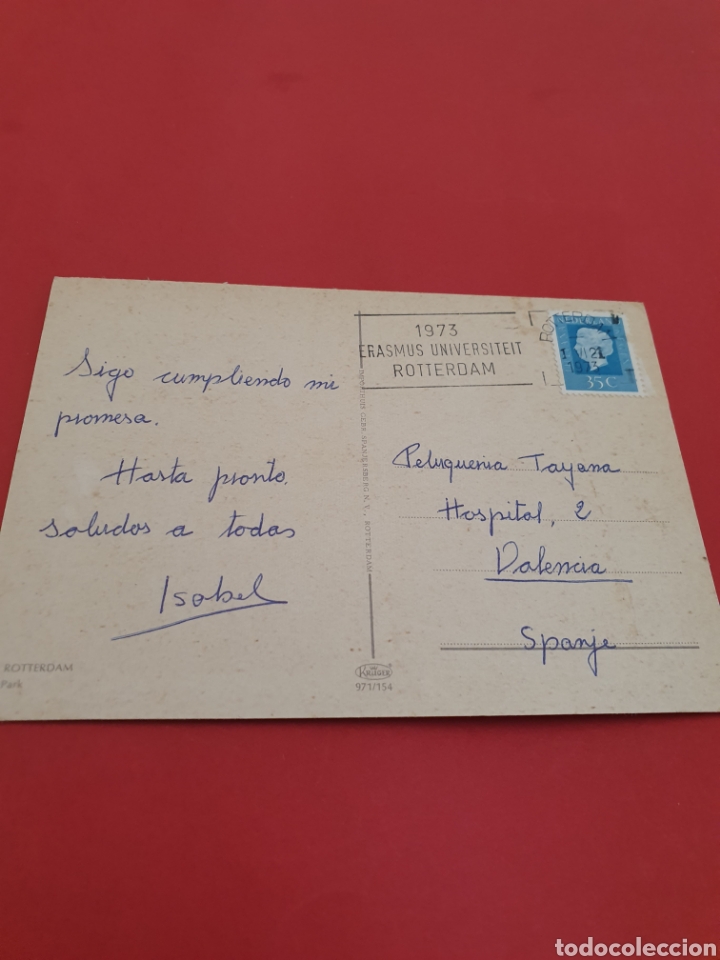 1973
ERASMUS UNIVERSITEIT
ROTTERDAM
NEDERLAND
1973
35C
Sigo cumpliendo mi
promesa.
Hasta pronto.
saludos a todas
Isabel
Peluqueria Tayana
Hospital, 2
Valencia
Spanje
ROTTERDAM
Park
GEBR. SPANJERSBERG N.V., ROTTERDAM
971/154
todocoleccion